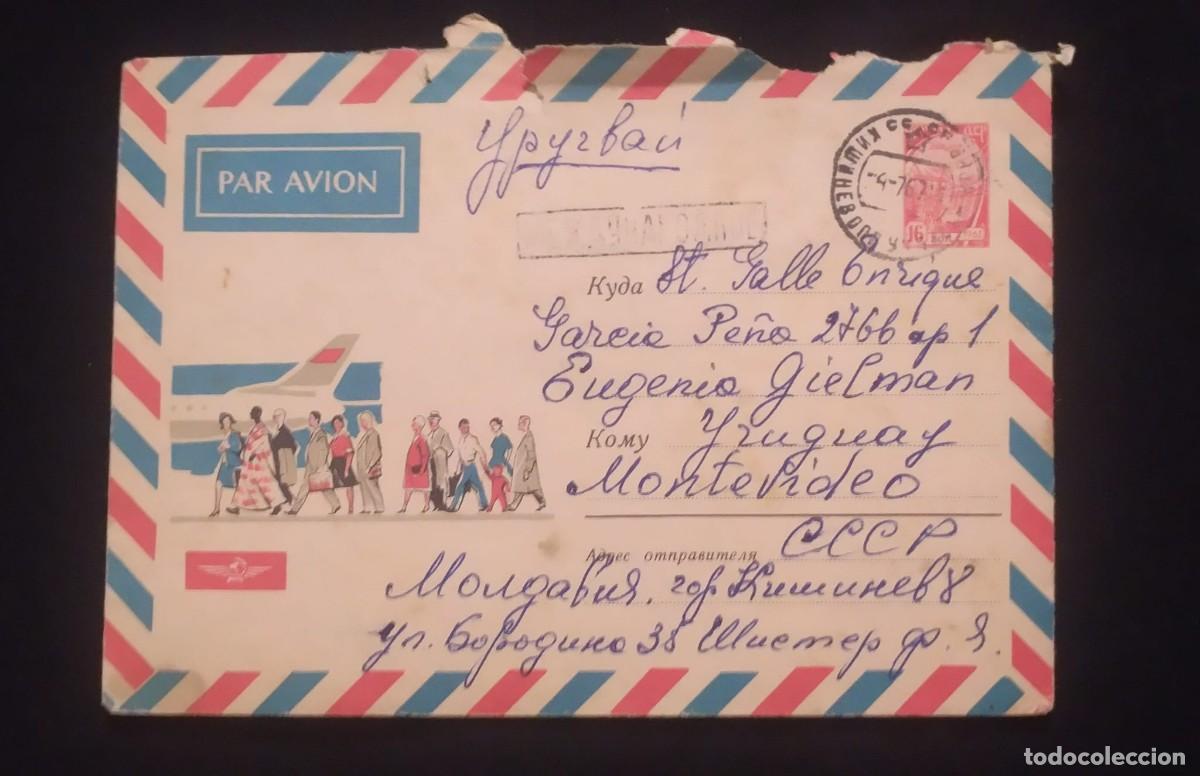 Уругвай
PAR AVION
КИШИНЕВ
16 КОП 1961
Куда St. Galle Enrique
Garcia Peña 2766 ap 1
Eugenia Gielman
Кому Uruguay
Montevideo
Адрес отправителя СССР
Молдавия, гор Кишинев 8
ул. Бородино 38 Шистер Ф. Я.
todocoleccion